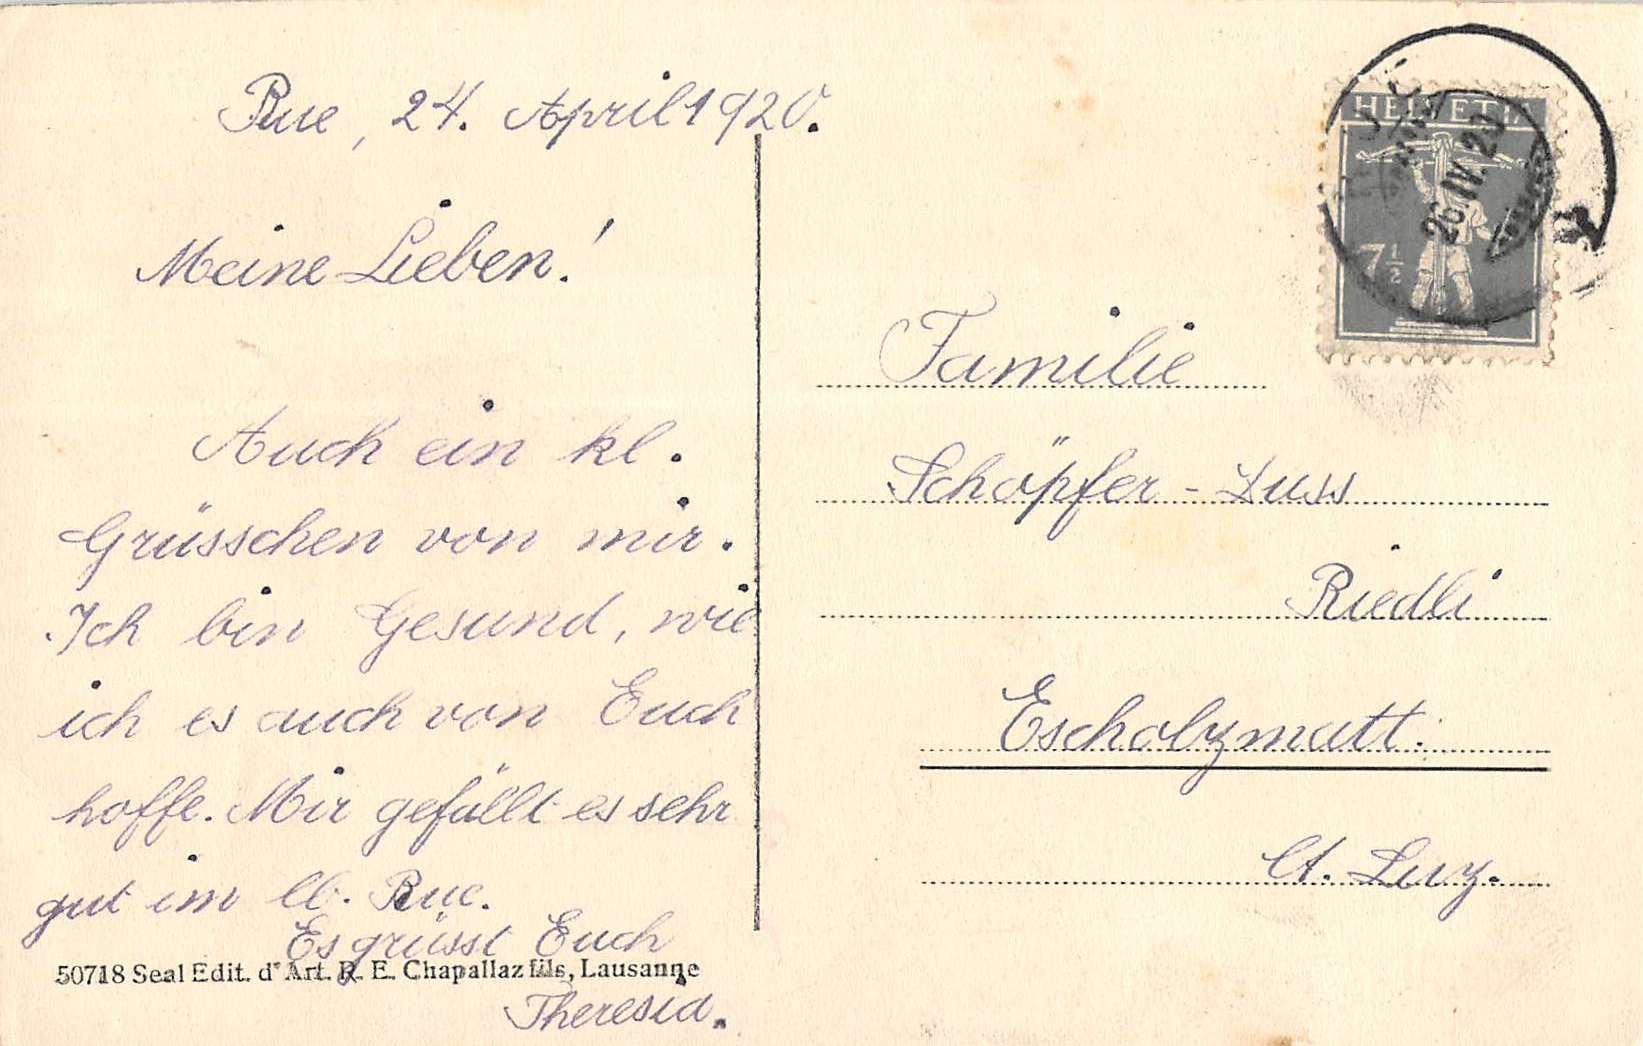 Rue, 24. April 1920.
Meine Lieben!
Auch ein kl.
Grüsschen von mir.
Ich bin Gesund, wie
ich es auch von Euch
hoffe. Mir gefällt es sehr
gut im lb. Rue.
Es grüsst Euch
50718 Seal Edit. d'Art. R. E. Chapallaz fils, Lausanne
Theresia.
HELVETIA
7 1/2
RUE
26.IV.20
Familie
Schöpfer-Luss
Riedli
Escholzmatt.
Ct. Luz.